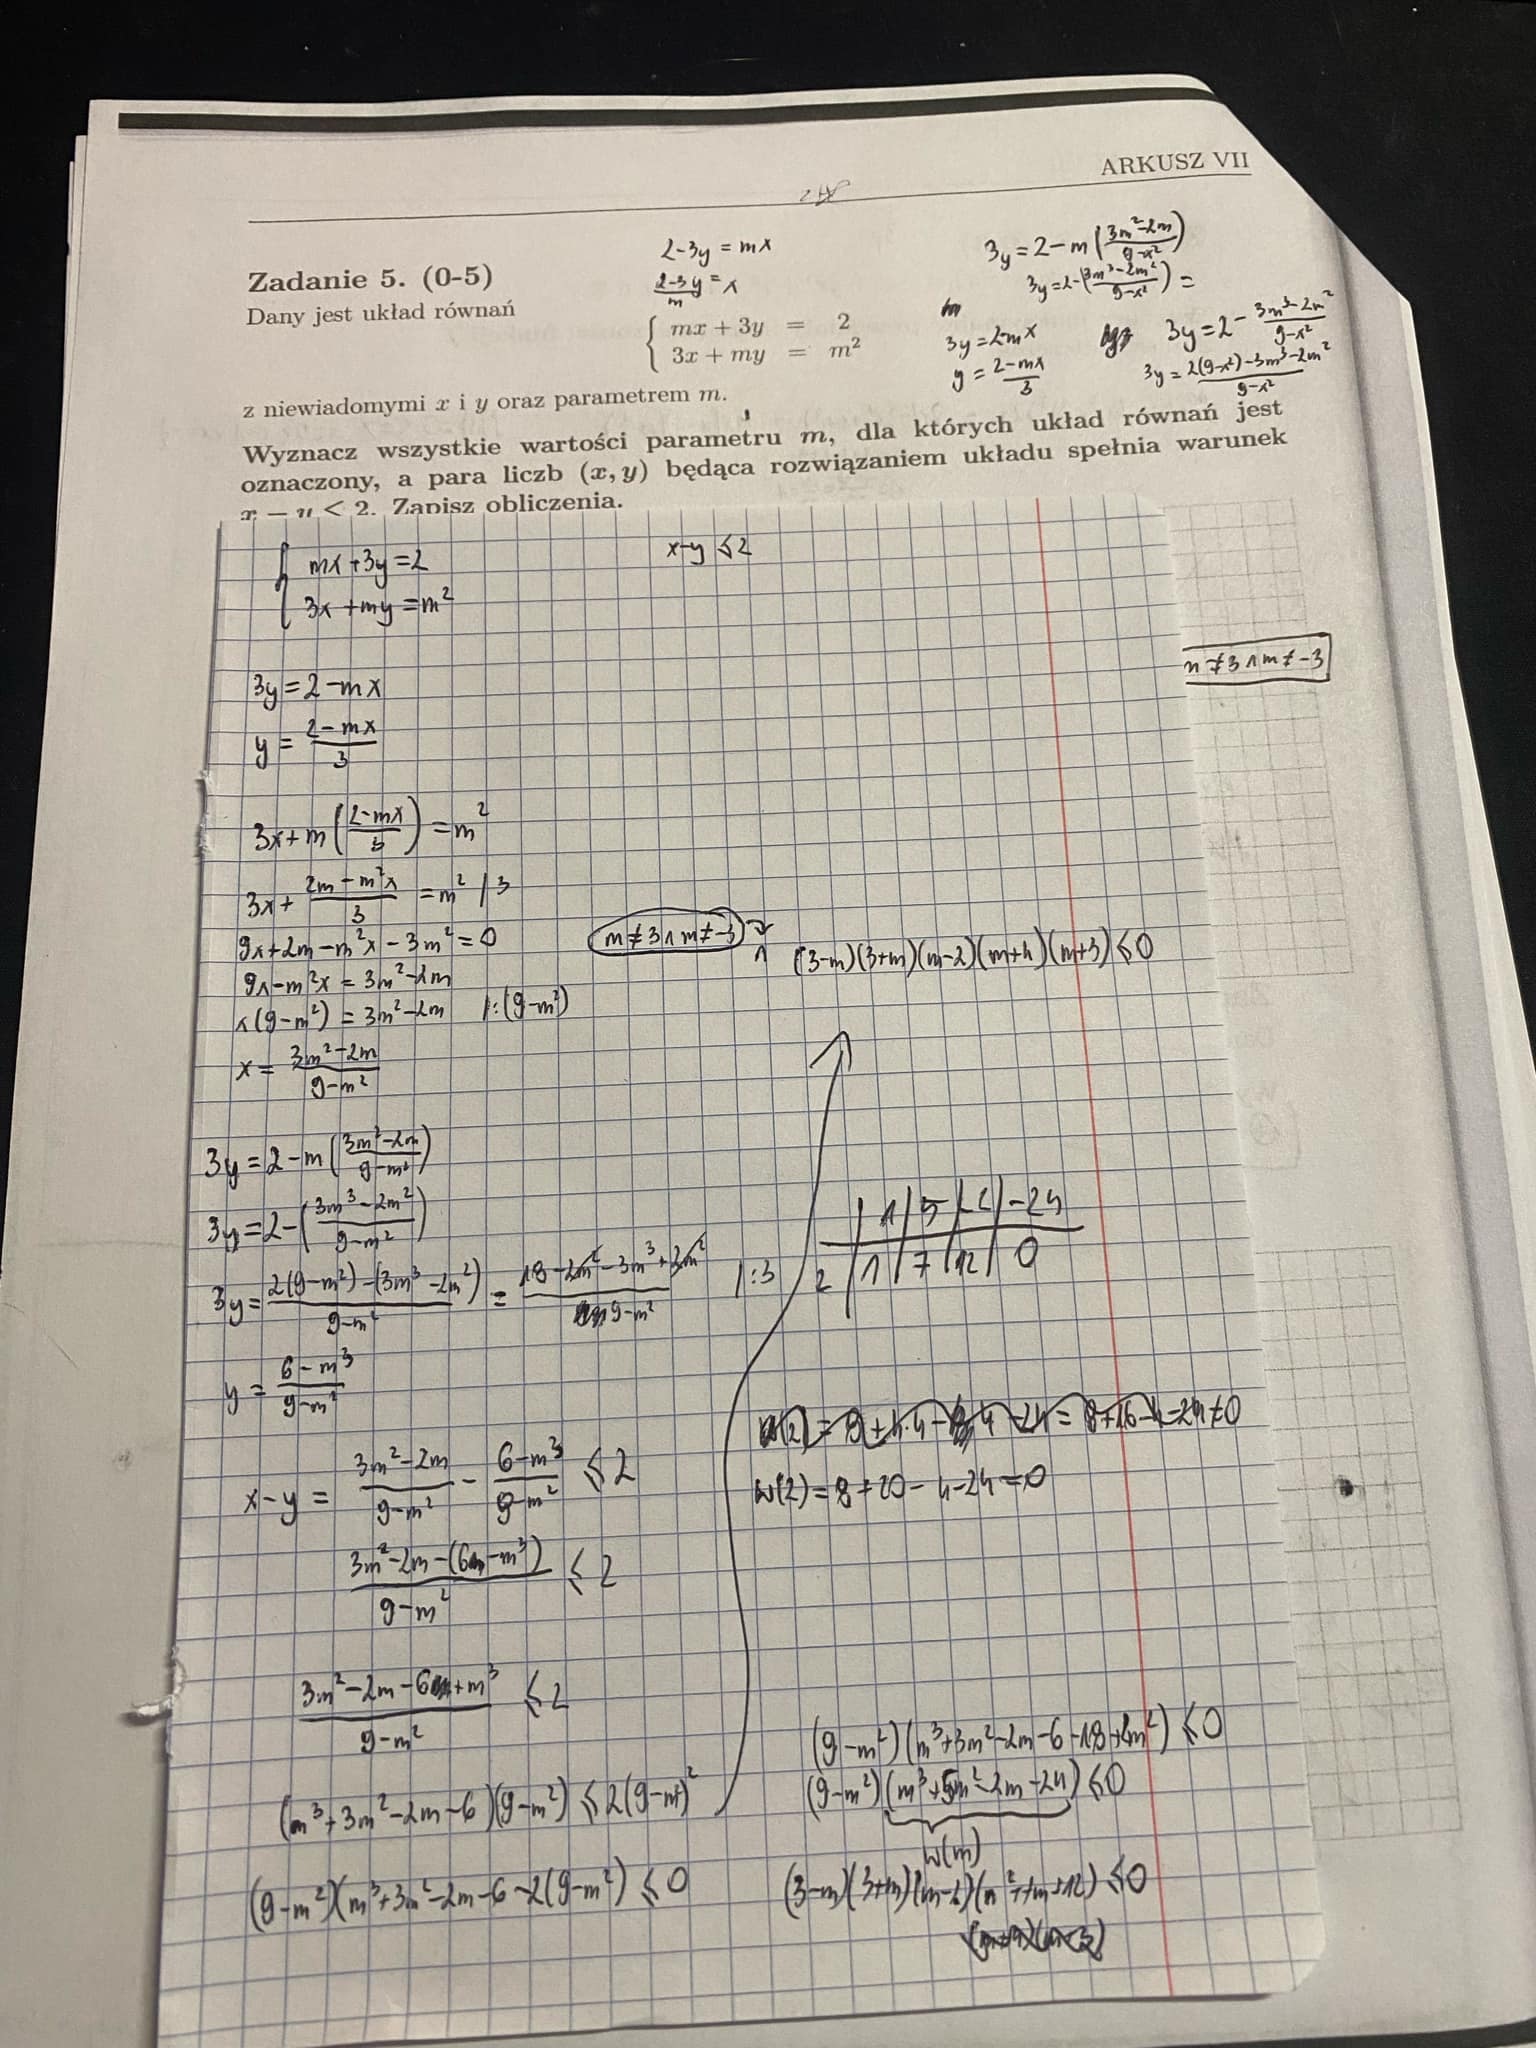 ARKUSZ VII
2-3y = mx
(2-3y)/m = x
Zadanie 5. (0-5)
Dany jest układ równań
{ mx + 3y = 2
{ 3x + my = m²
3y = 2-mx
y = (2-mx)/3
3y = 2-m((3m²-2m)/(9-x²))
3y = 2-((3m³-2m²)/(9-x²)) =
3y = 2 - (3m³-2m²)/(9-x²)
3y = (2(9-x²)-3m³-2m²)/(9-x²)
z niewiadomymi x i y oraz parametrem m.
Wyznacz wszystkie wartości parametru m, dla których układ równań jest
oznaczony, a para liczb (x, y) będąca rozwiązaniem układu spełnia warunek
x − y ≤ 2. Zapisz obliczenia.
{ mx+3y=2
{ 3x+my=m²
x-y ≤ 2
m≠3 ∧ m≠-3
3y = 2-mx
y = (2-mx)/3
3x+m((2-mx)/3) = m²
3x+(2m-m²x)/3 = m² /3
9x+2m-m²x-3m² = 0
9x-m²x = 3m²-2m
x(9-m²) = 3m²-2m /:(9-m²)
x = (3m²-2m)/(9-m²)
3y = 2-m((3m²-2m)/(9-m²))
3y = 2-((3m³-2m²)/(9-m²))
3y = (2(9-m²)-(3m³-2m²))/(9-m²) = (18-2m²-3m³+2m²)/(9-m²) /:3
y = (6-m³)/(9-m²)
x-y = (3m²-2m)/(9-m²) - (6-m³)/(9-m²) ≤ 2
(3m²-2m-(6-m³))/(9-m²) ≤ 2
(3m²-2m-6+m³)/(9-m²) ≤ 2
(m³+3m²-2m-6)(9-m²) ≤ 2(9-m²)²
(9-m²)(m³+3m²-2m-6-2(9-m²) ≤ 0
m≠3 ∧ m≠-3 ∧ (3-m)(3+m)(m-2)(m+4)(m+3) ≤ 0
| 1 | 5 | -2 | -24
2 | 1 | 7 | 12 | 0
w(2) = 8+20-4-24 = 0
(9-m²)(m³+3m²-2m-6-18+2m²) ≤ 0
(9-m²)(m³+5m²-2m-24) ≤ 0
w(m)
(3-m)(3+m)(m-2)(m²+7m+12) ≤ 0